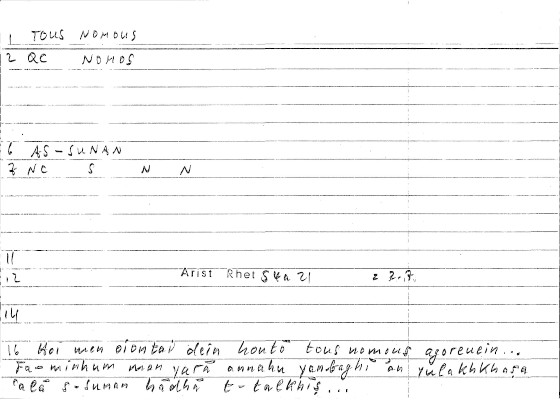 1 TOUS NOMOUS
2 QC NOMOS
6 AS-SUNAN
7 NC S N N
11
12 Arist Rhet 54a 21 2 7.7.
14
16 Hoi men oiontai dein houtō tous nomous agoreuein...
Fa-minhum man yarā annahu yanbaghī an yulakhkhaṣa
ʿalā s-sunan hādhā t-talkhīṣ...